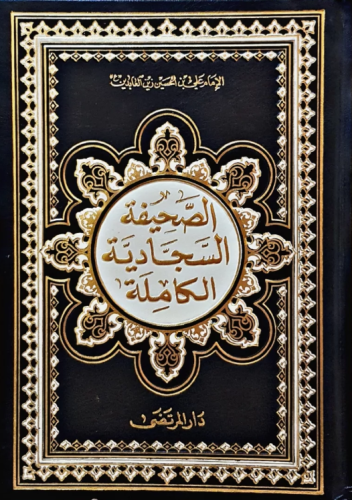 الإمام علي بن الحسين زين العابدين ع
الصَّحِيفَة
السَّجَّاديَّة
الكَامِلَة
دَار المرتضى